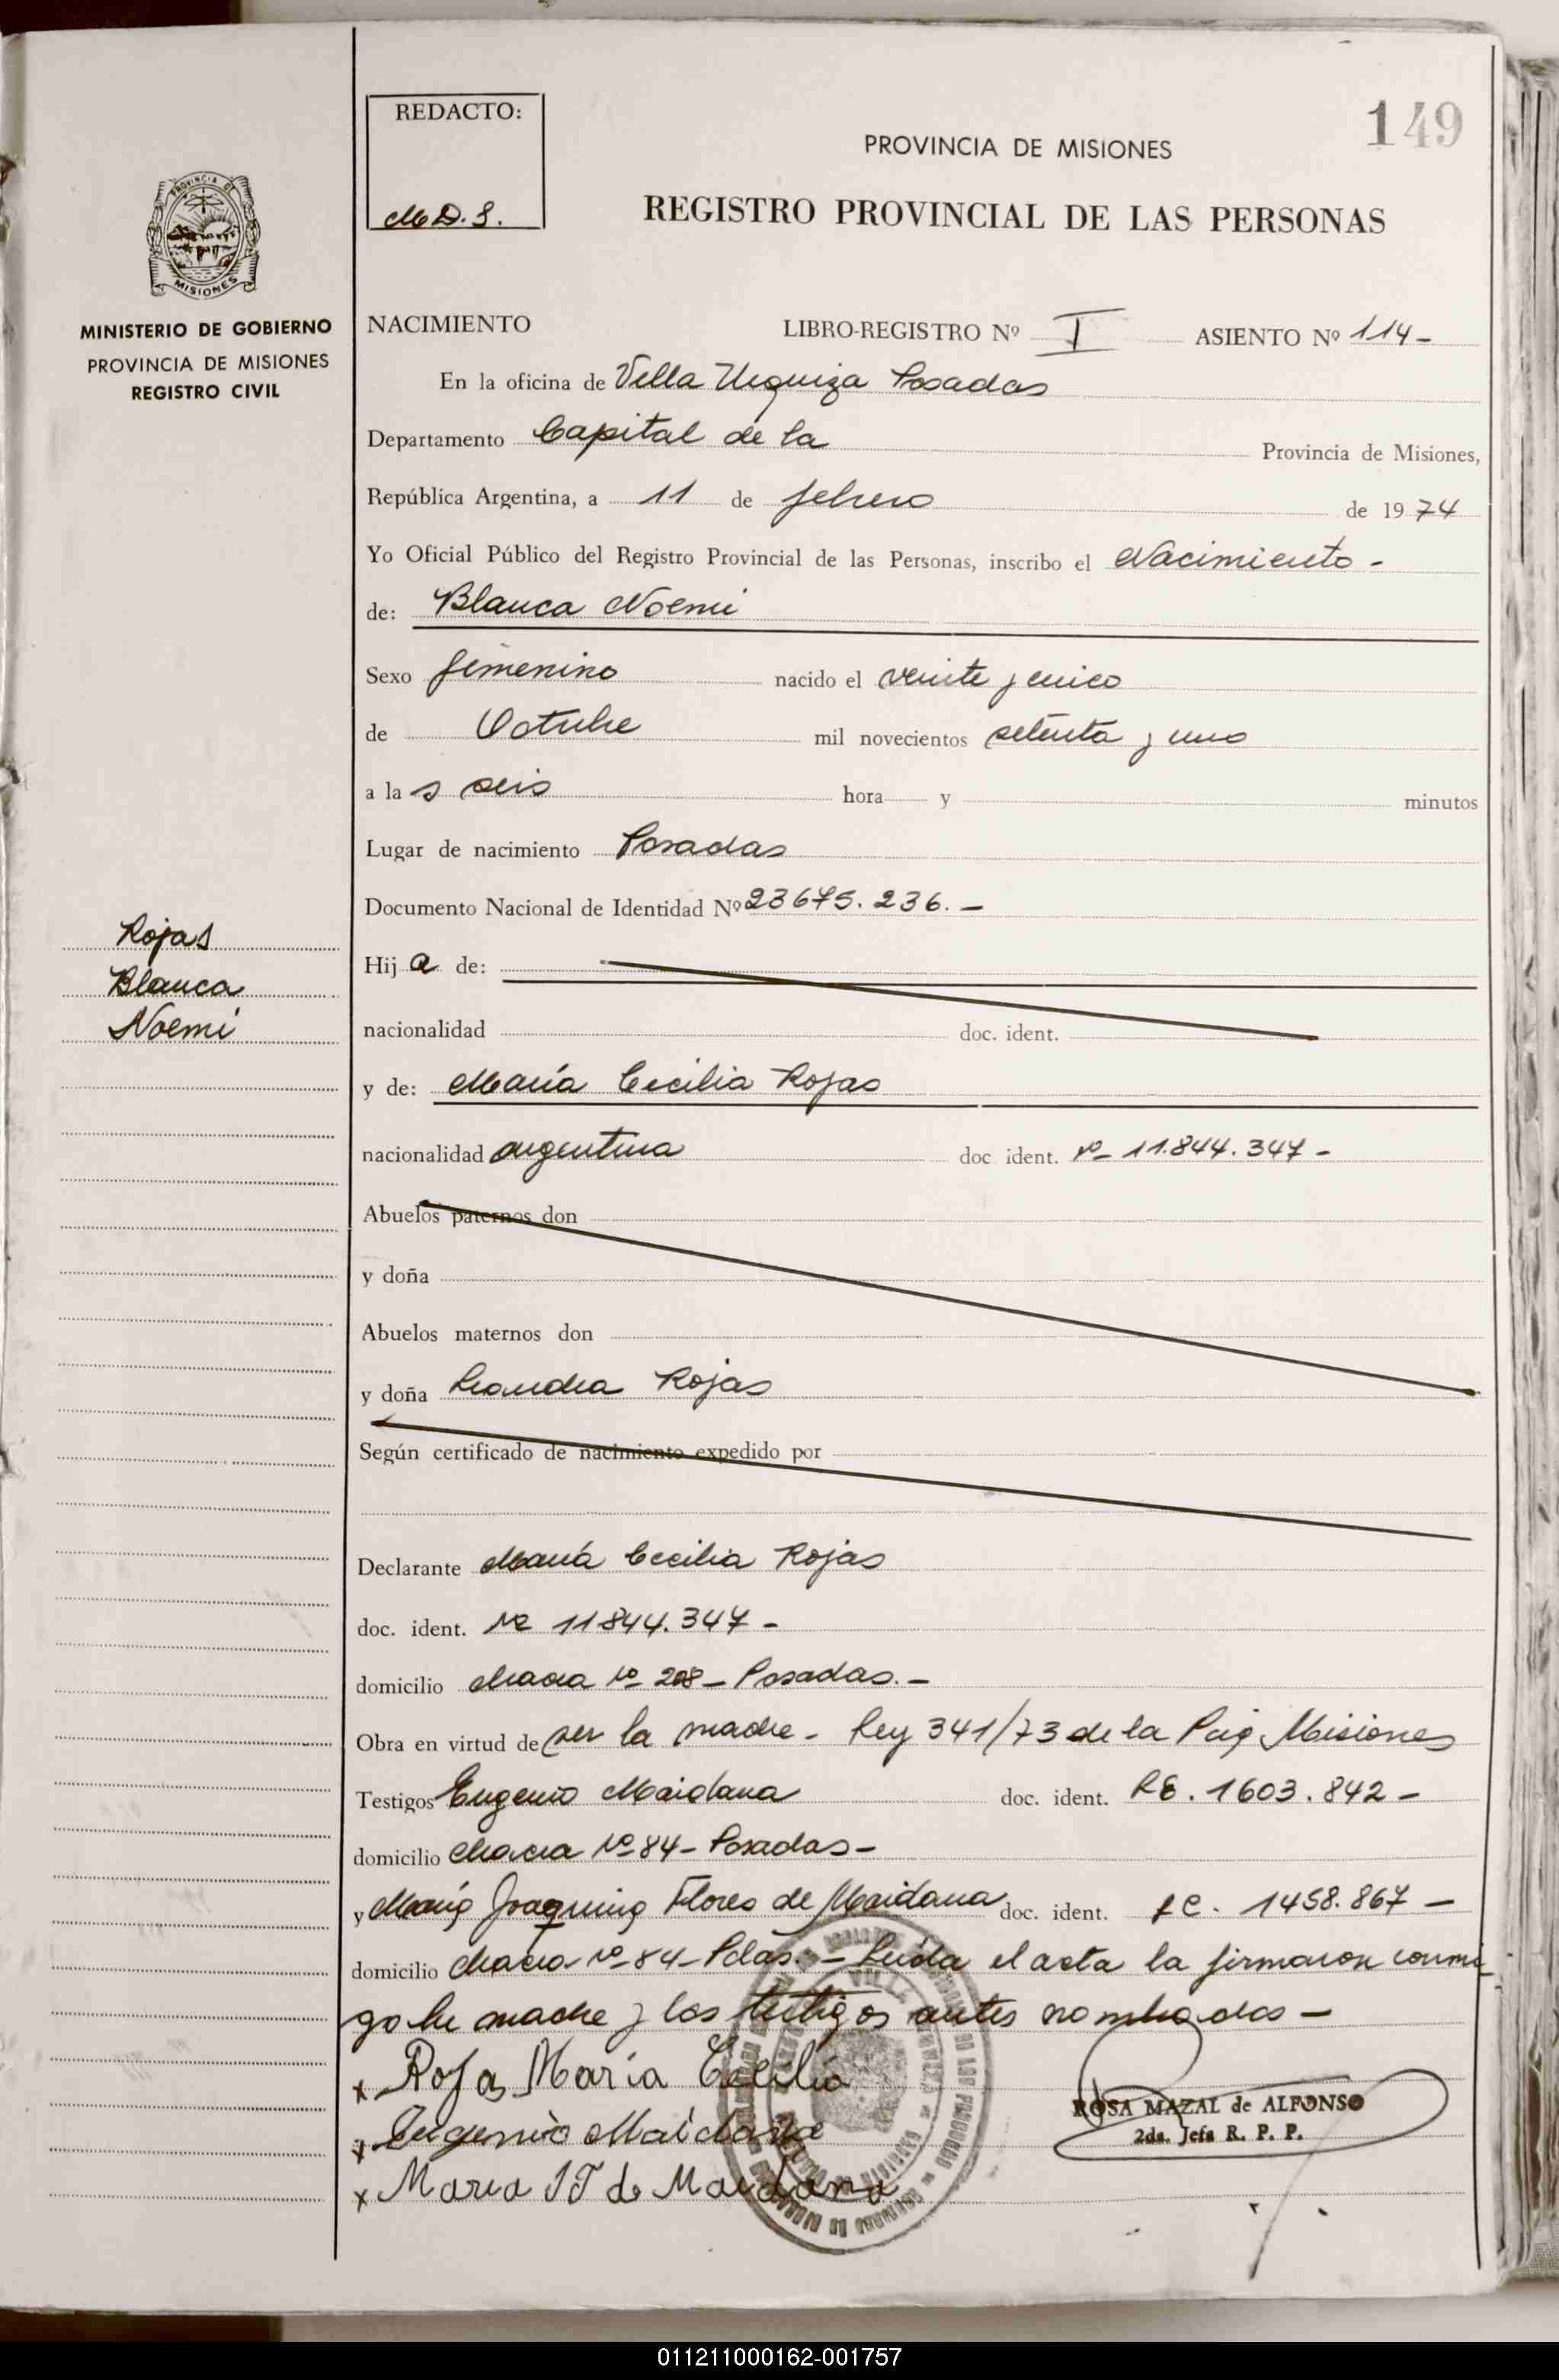 149
REDACTO:
M.D.S.
PROVINCIA DE MISIONES
REGISTRO PROVINCIAL DE LAS PERSONAS
PROVINCIA DE
MISIONES
MINISTERIO DE GOBIERNO
PROVINCIA DE MISIONES
REGISTRO CIVIL
NACIMIENTO LIBRO-REGISTRO Nº I ASIENTO Nº 114-
En la oficina de Villa Urquiza Posadas
Departamento Capital de la Provincia de Misiones,
República Argentina, a 11 de febrero de 1974
Yo Oficial Público del Registro Provincial de las Personas, inscribo el Nacimiento -
de: Blanca Noemi
Sexo femenino nacido el veinte y cinco
de Octubre mil novecientos setenta y uno
a la s seis hora y minutos
Lugar de nacimiento Posadas
Documento Nacional de Identidad Nº 23675.236.-
Rojas
Blanca
Noemi
Hij a de:
nacionalidad doc. ident.
y de: María Cecilia Rojas
nacionalidad argentina doc. ident. Nº 11.844.347-
Abuelos paternos don
y doña
Abuelos maternos don
y doña Leandra Rojas
Según certificado de nacimiento expedido por
Declarante María Cecilia Rojas
doc. ident. Nº 11844.347-
domicilio chacra Nº 208- Posadas.-
Obra en virtud de ser la madre - Ley 341/73 de la Misiones
Testigos Eugenio Maidana doc. ident. 1603.842-
domicilio chacra Nº 84- Posadas-
y María Joaquina Flores de Maidana doc. ident. 1458.867-
domicilio chacra Nº 84- Pdas.- Leida el acta la firmaron conmi-
go la madre y los testigos antes nombrados-
x Rojas María Cecilia
x Eugenio Maidana
x Maria J F de Maidana
ROSA MAZAL de ALFONSO
2da. Jefa R. P. P.
011211000162-001757